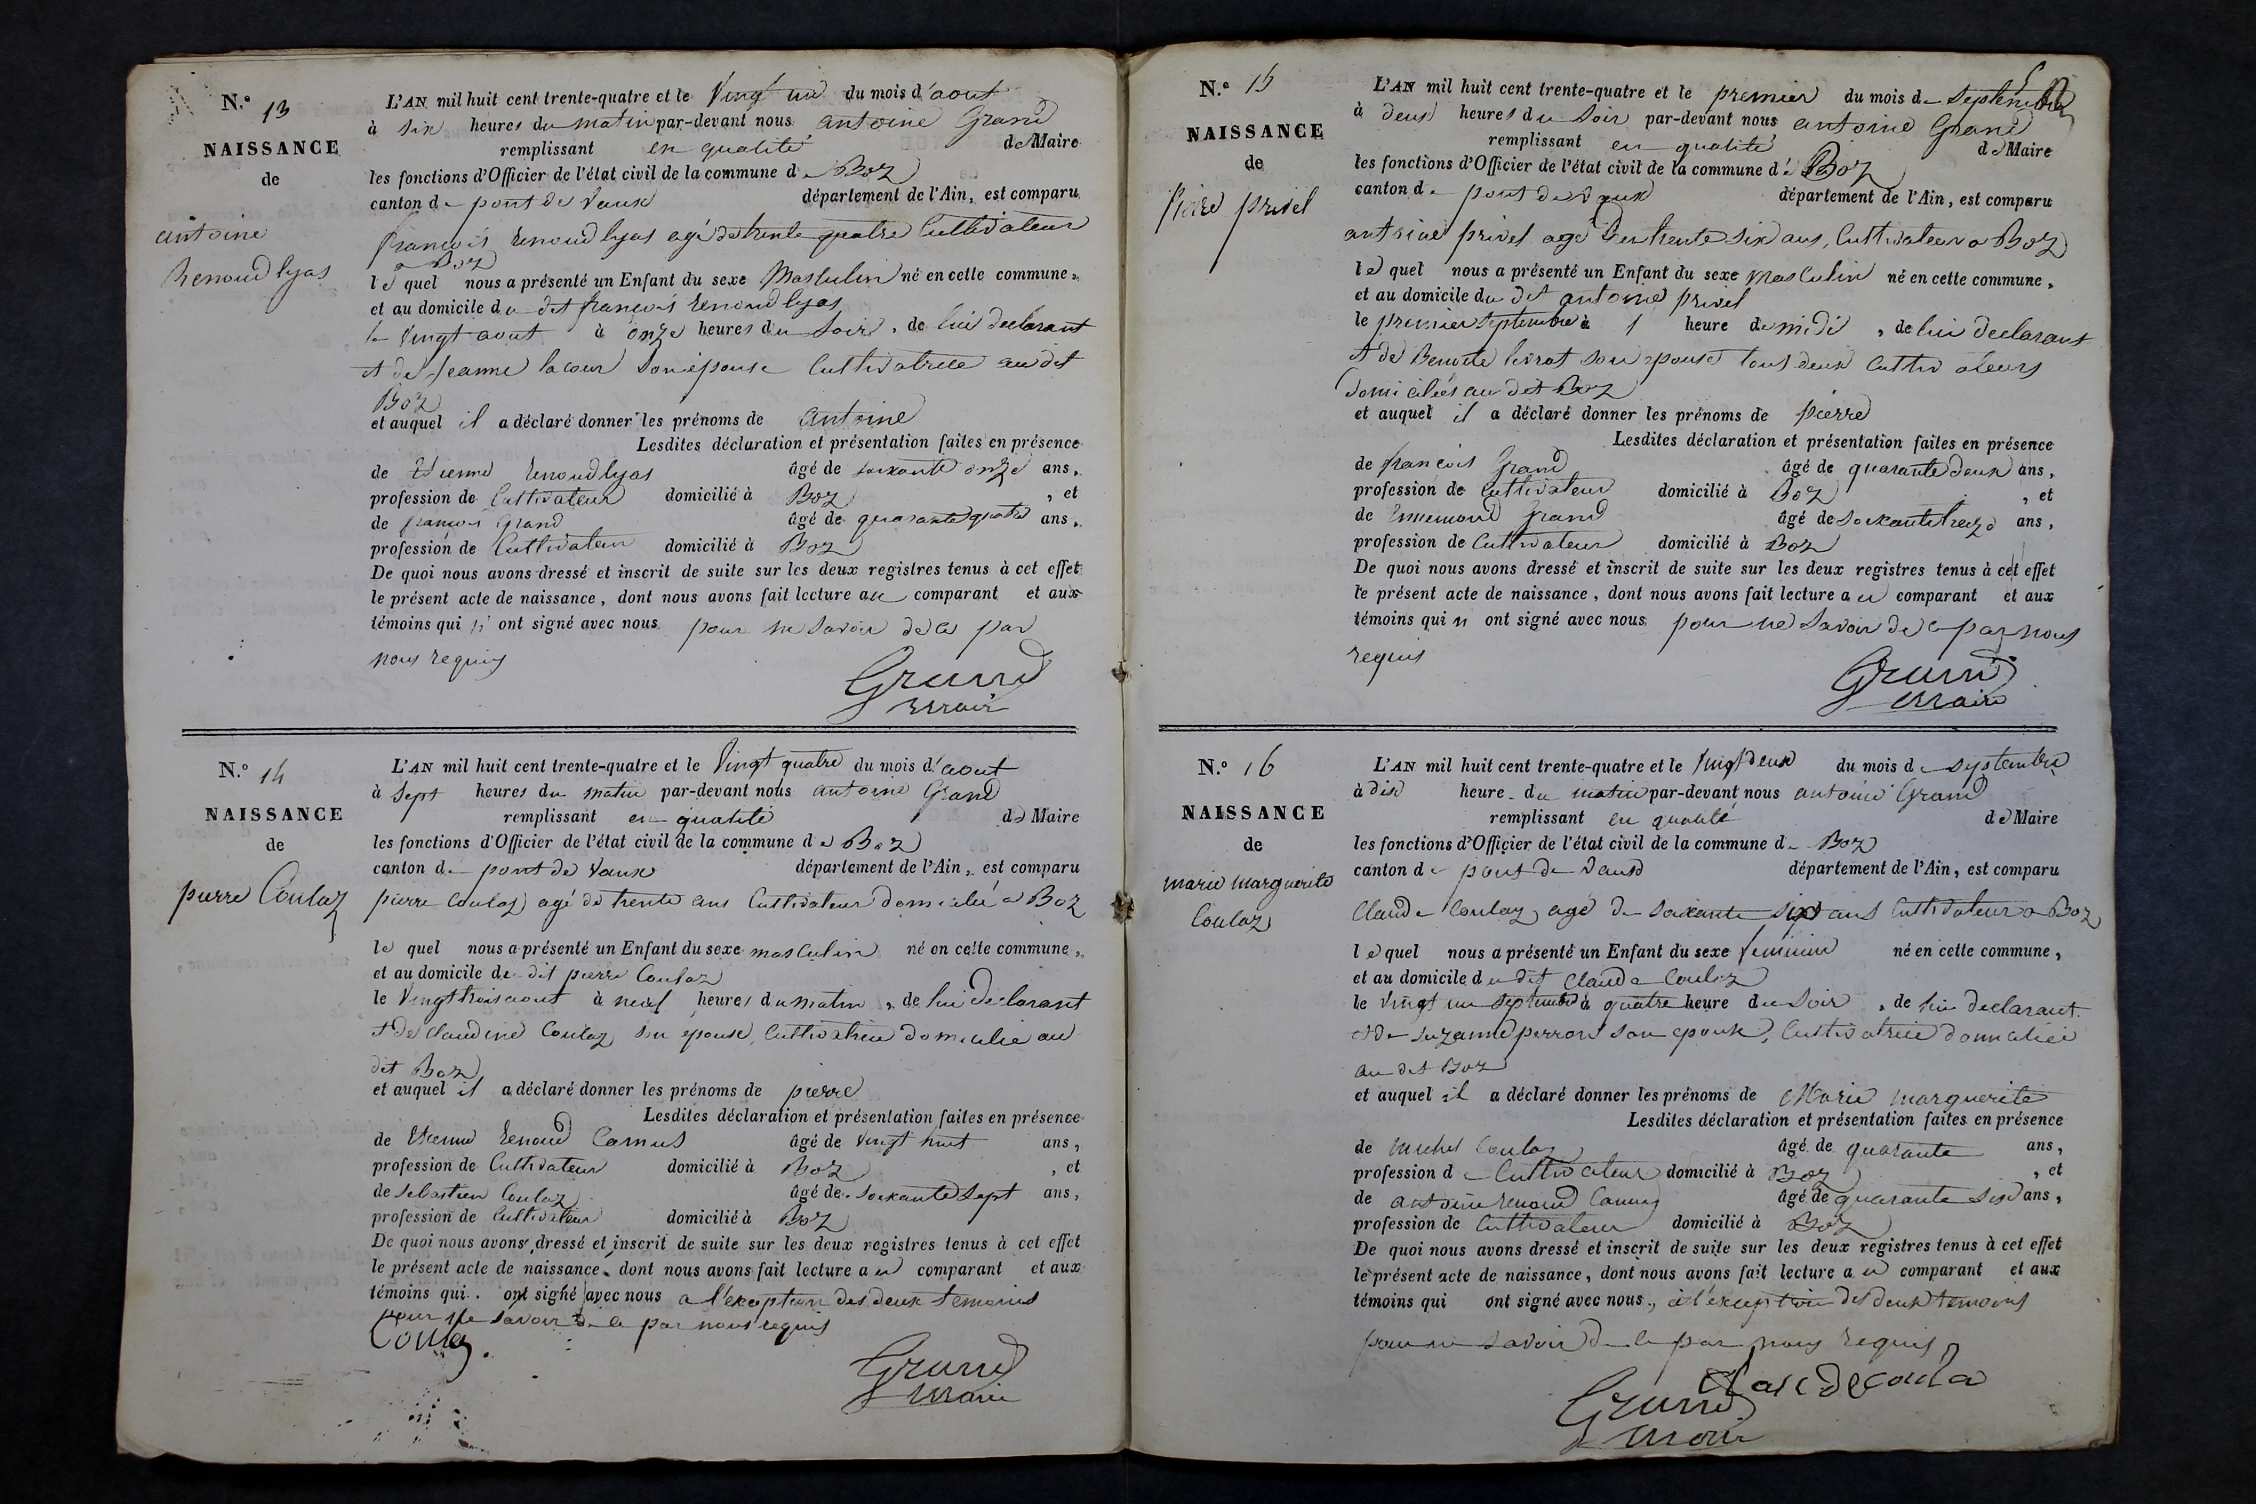 N.º 13
NAISSANCE
de
antoine
Renoud lyas
L'AN mil huit cent trente-quatre et le Vingt un du mois d'aout
à six heures du matin par-devant nous antoine Grand
remplissant en qualité de Maire
les fonctions d'Officier de l'état civil de la commune de Boz
canton de pont de Vaux département de l'Ain, est comparu
françois Renoud lyas agé de trente quatre Cultivateur
a Boz
le quel nous a présenté un Enfant du sexe Masculin né en cette commune,
et au domicile du dit françois Renoud lyas
le Vingt aout à onze heures du soir, de lui declarant
et de jeanne lacour son épouse Cultivatrice au dit
Boz
et auquel il a déclaré donner les prénoms de antoine
Lesdites déclaration et présentation faites en présence
de Etienne Renoud lyas âgé de soixante onze ans,
profession de Cultivateur domicilié à Boz, et
de françois Grand âgé de quarante quatre ans,
profession de Cultivateur domicilié à Boz
De quoi nous avons dressé et inscrit de suite sur les deux registres tenus à cet effet
le présent acte de naissance, dont nous avons fait lecture au comparant et aux
témoins qui n'ont signé avec nous pour ne savoir de ce par
nous requis
Grand
maire
N.º 14
NAISSANCE
de
pierre Coulaz
L'AN mil huit cent trente-quatre et le Vingt quatre du mois d'aout
à sept heures du matin par-devant nous antoine Grand
remplissant en qualité de Maire
les fonctions d'Officier de l'état civil de la commune de Boz
canton de pont de Vaux département de l'Ain, est comparu
pierre Coulaz agé de trente ans Cultivateur domicilié a Boz
le quel nous a présenté un Enfant du sexe masculin né en cette commune,
et au domicile de dit pierre Coulaz
le Vingt trois aout à neuf heures du matin, de lui declarant
et de Claudine Coulaz son epouse, Cultivatrice domicilie au
dit Boz
et auquel il a déclaré donner les prénoms de pierre
Lesdites déclaration et présentation faites en présence
de Etienne Renoud Camus âgé de vingt huit ans,
profession de Cultivateur domicilié à Boz, et
de sebastien Coulaz âgé de soixante sept ans,
profession de Cultivateur domicilié à Boz
De quoi nous avons dressé et inscrit de suite sur les deux registres tenus à cet effet
le présent acte de naissance, dont nous avons fait lecture au comparant et aux
témoins qui ont signé avec nous a l'exception des deux temoins
pour ne savoir de ce par nous requis
Grand
maire
N.º 15
NAISSANCE
de
Pierre privel
L'AN mil huit cent trente-quatre et le premier du mois de septembre
à deux heures du soir par-devant nous antoine Grand
remplissant en qualité de Maire
les fonctions d'Officier de l'état civil de la commune de Boz
canton de pont de Vaux département de l'Ain, est comparu
antoine privel agé de trente six ans, Cultivateur a Boz
le quel nous a présenté un Enfant du sexe masculin né en cette commune,
et au domicile du dit antoine privel
le premier septembre à 1 heure de midi, de lui declarant
et de Benoite livrat son epouse tous deux Cultivateurs
domiciliés au dit Boz
et auquel il a déclaré donner les prénoms de pierre
Lesdites déclaration et présentation faites en présence
de françois Grand âgé de quarante deux ans,
profession de Cultivateur domicilié à Boz, et
de Ennemond Grand âgé de soixante treize ans,
profession de Cultivateur domicilié à Boz
De quoi nous avons dressé et inscrit de suite sur les deux registres tenus à cet effet
le présent acte de naissance, dont nous avons fait lecture au comparant et aux
témoins qui n ont signé avec nous pour ne savoir de ce par nous
requis
Grand
maire
N.º 16
NAISSANCE
de
marie marguerite
Coulaz
L'AN mil huit cent trente-quatre et le Vingt deux du mois de septembre
à dix heure du matin par-devant nous antoine Grand
remplissant en qualité de Maire
les fonctions d'Officier de l'état civil de la commune de Boz
canton de pont de Vaux département de l'Ain, est comparu
Claude Coulaz agé de soixante six ans Cultivateur a Boz
le quel nous a présenté un Enfant du sexe feminin né en cette commune,
et au domicile du dit Claude Coulaz
le vingt un septembre à quatre heure du soir, de lui declarant
et de suzanne perron son epouse, Cultivatrice domiciliée
au dit Boz
et auquel il a déclaré donner les prénoms de Marie marguerite
Lesdites déclaration et présentation faites en présence
de michel Coulaz âgé de quarante ans,
profession de Cultivateur domicilié à Boz, et
de antoine renoud Camus âgé de quarante six ans,
profession de Cultivateur domicilié à Boz
De quoi nous avons dressé et inscrit de suite sur les deux registres tenus à cet effet
le présent acte de naissance, dont nous avons fait lecture au comparant et aux
témoins qui ont signé avec nous, à l'exception des deux temoins
pour ne savoir de ce par nous requis
Grand
maire